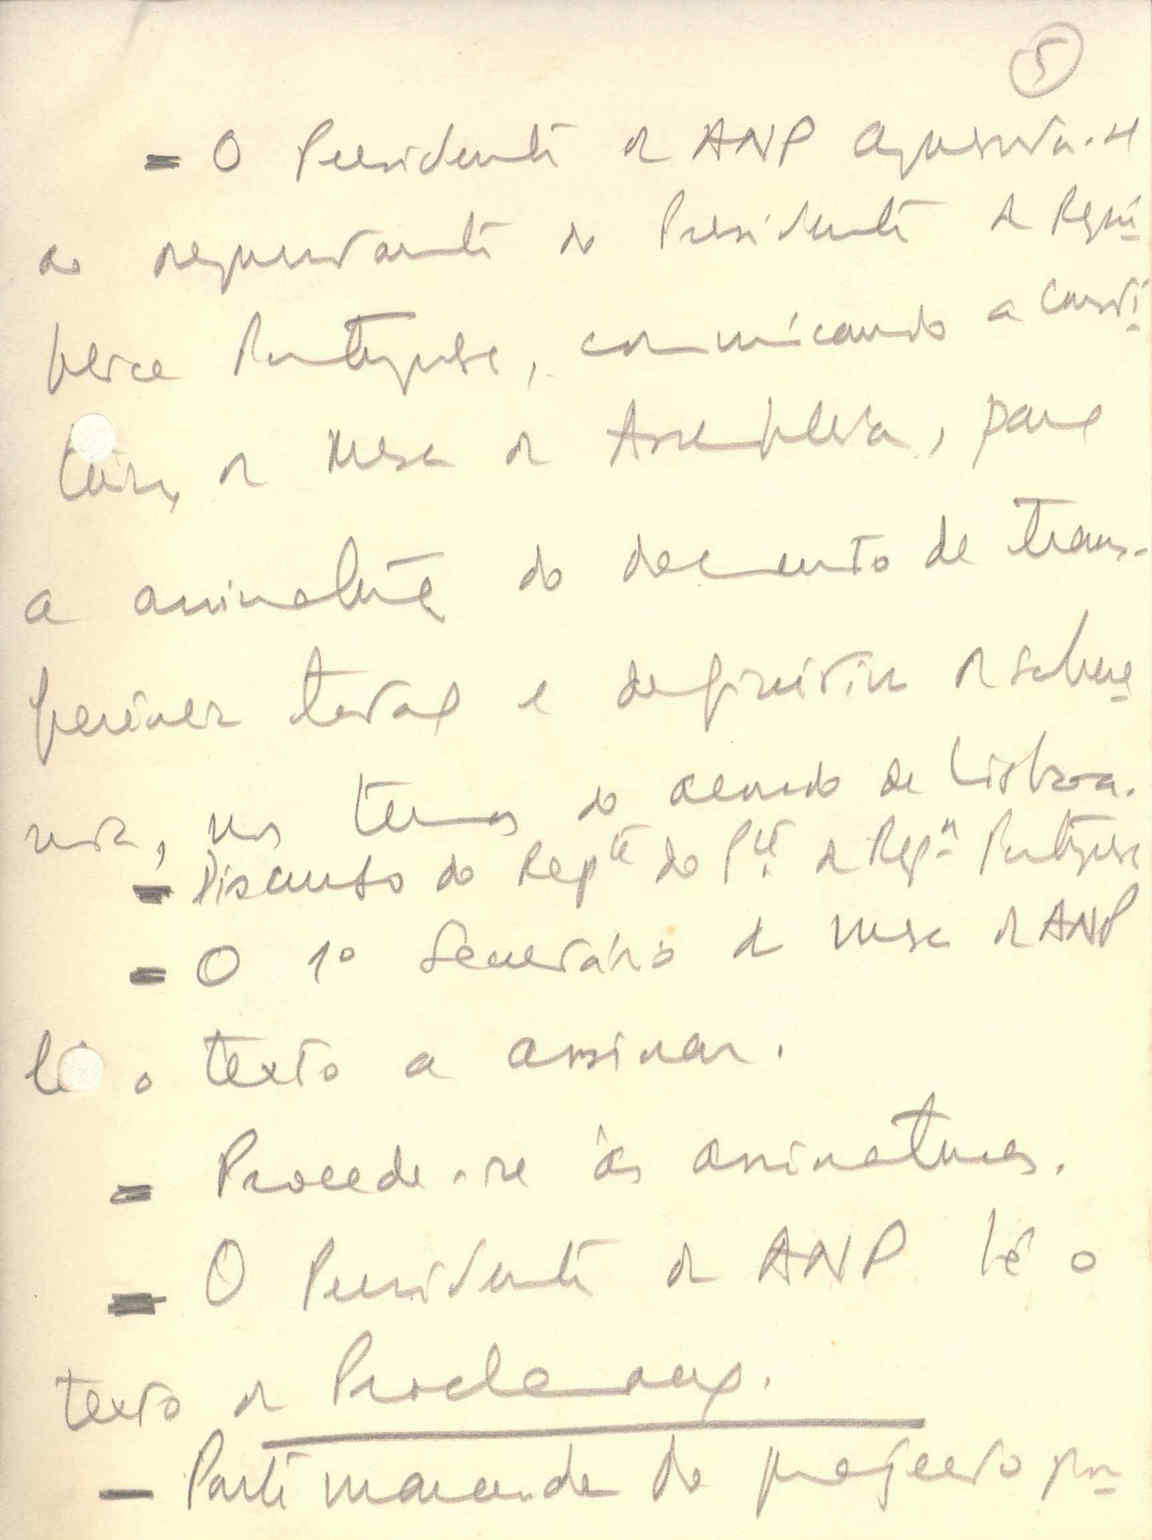 5
- O Presidente da ANP apresenta-se
ao representante do Presidente da Repú-
blica Portuguesa, comunicando a consti-
tuição da Mesa da Assembleia, para
a assinatura do documento de trans-
ferência total e definitiva da sobera-
nia, nos termos do acordo de Lisboa.
- Discurso do Rep.te do P.te da Rep.ca Portuguesa
- O 1º Secretário da mesa da ANP
lê o texto a assinar.
- Procede-se às assinaturas.
- O Presidente da ANP lê o
texto da Proclamação.
- Parte do projecto